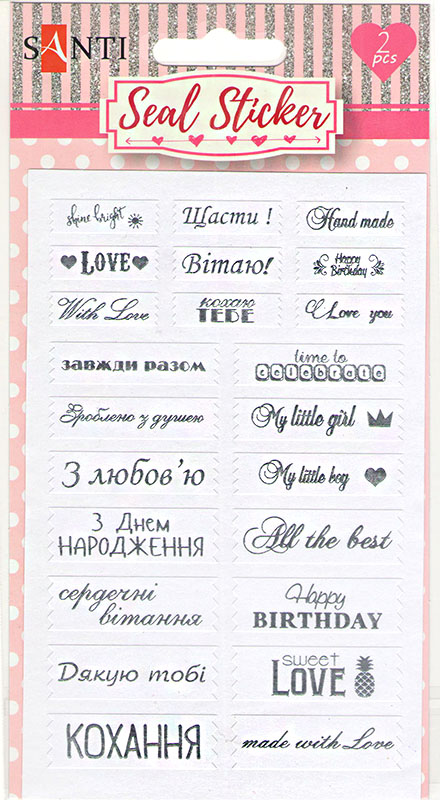 SANTI
2
pcs
Seal Sticker
shine bright
Щасти !
Hand made
LOVE
Вітаю!
Happy
Birthday
With Love
кохаю
ТЕБЕ
I Love you
завжди разом
time to
celebrate
Зроблено з душею
My little girl
З любов'ю
My little boy
З Днем
НАРОДЖЕННЯ
All the best
сердечні
вітання
Happy
BIRTHDAY
Дякую тобі
sweet
LOVE
КОХАННЯ
made with Love